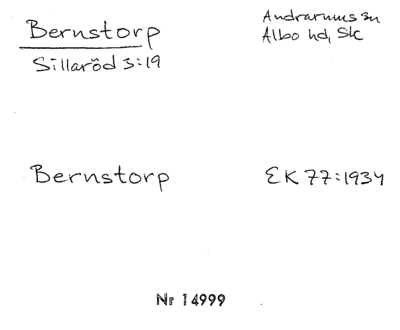 Bernstorp
Sillaröd 3:19
Andrarums sn
Albo hd, Sk
Bernstorp
EK 77:1934
Nr 14999